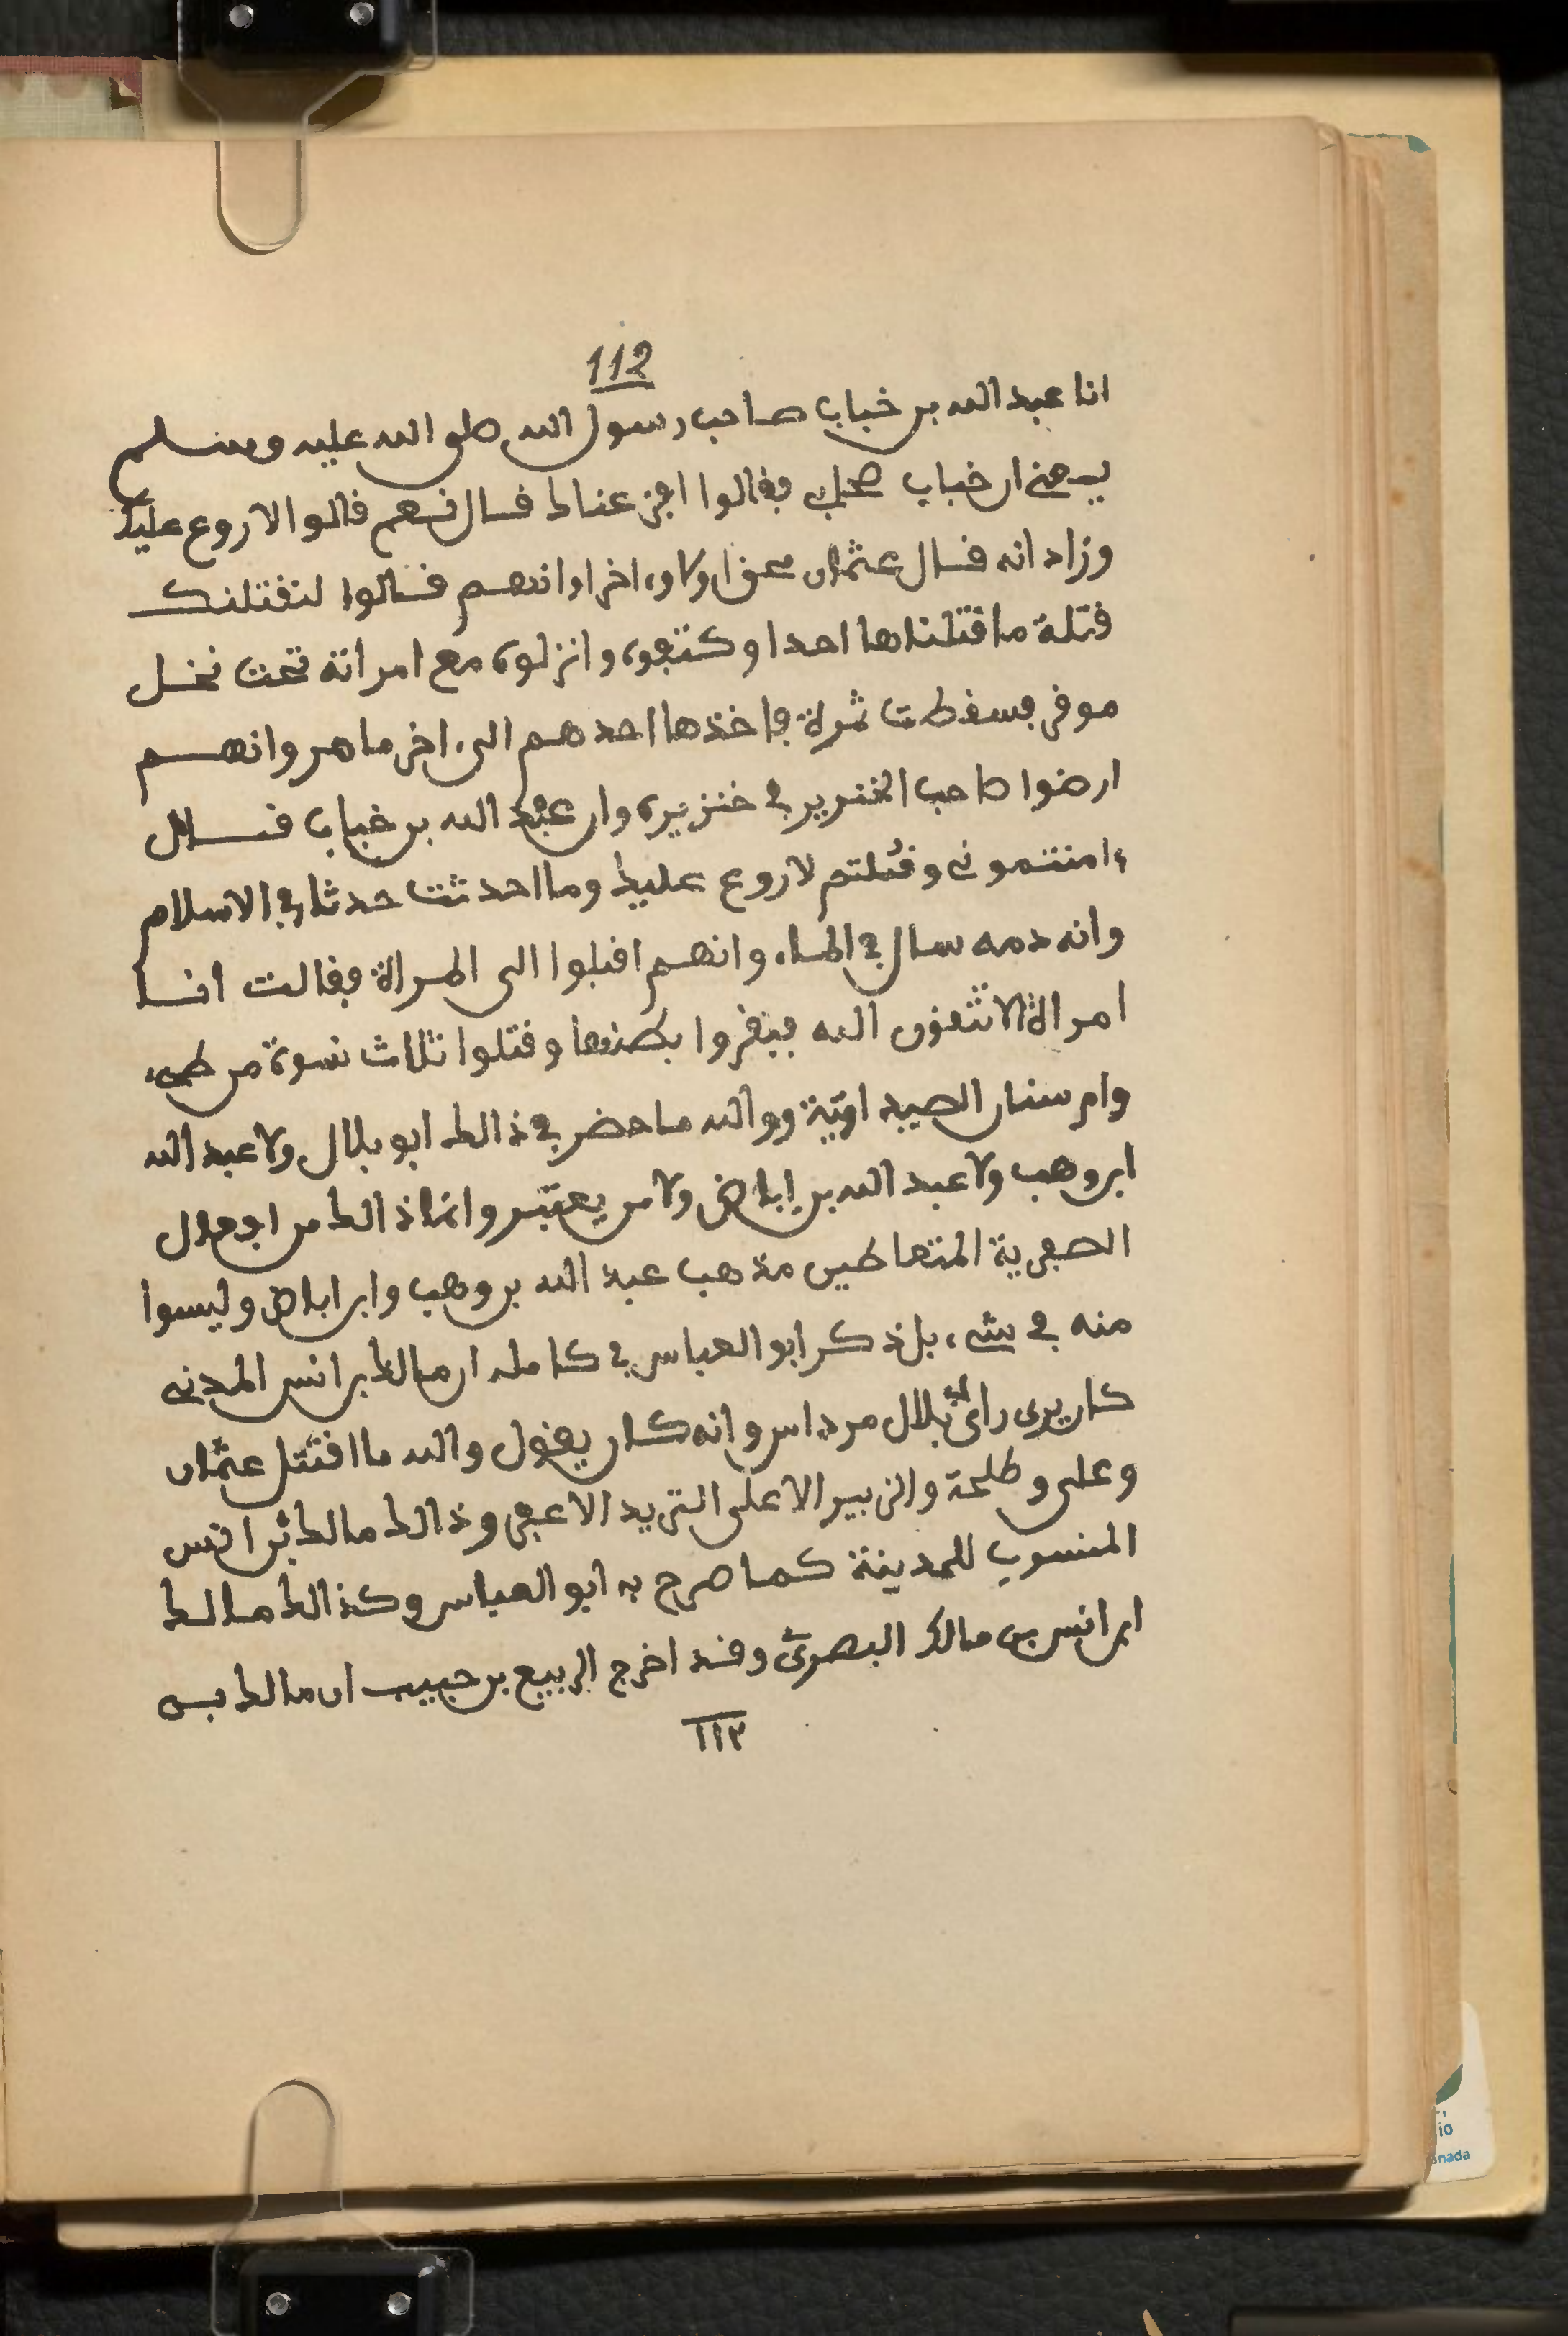 112
انا عبد الله بن خباب صاحب رسول الله صلى الله عليه وسلم
يعني ان خباب صحابي فقالوا افزعناك قال نعم قالوا لا روع عليك
وزاد انه قال عثمان محق اولا وءاخرا وانهم قالوا لنقتلنك
قتلة ما قتلناها احدا وكتفوه وانزلوه مع امراته تحت نخل
موقر فسقطت ثمرة فاخذها احدهم الى ءاخر ما مر وانهم
ارضوا صاحب الخنزير في خنزيره وان عبد الله بن خباب قال
ءامنتموني وقلتم لا روع عليك وما احدثت حدثا في الاسلام
وانه دمه سال في الماء وانهم اقبلوا الى المراة فقالت انا
امراة الا تتقون الله فبقروا بطنها وقتلوا ثلاث نسوة من طيء
وام سنان الصيداوية ووالله ما حضر في ذالك ابو بلال ولا عبد الله
ابن وهب ولا عبد الله بن إباض ولا من يعتبر وانما ذالك من افعال
الصفرية المتعاطين مذهب عبد الله بن وهب وابن اباض وليسوا
منه في شيء بل ذكر ابو العباس في كامله ان مالك بن انس المدني
كان يرى راي ابي بلال مرداس وانه كان يقول والله ما اقتتل عثمان
وعلي وطلحة والزبير الا على الثريد الاعفر وذالك مالك بن انس
المنسوب للمدينة كما صرح به ابو العباس وكذالك مالك
ابن انس بن مالك البصري وقد اخرج الربيع بن حبيب ان مالك بن
١١٣